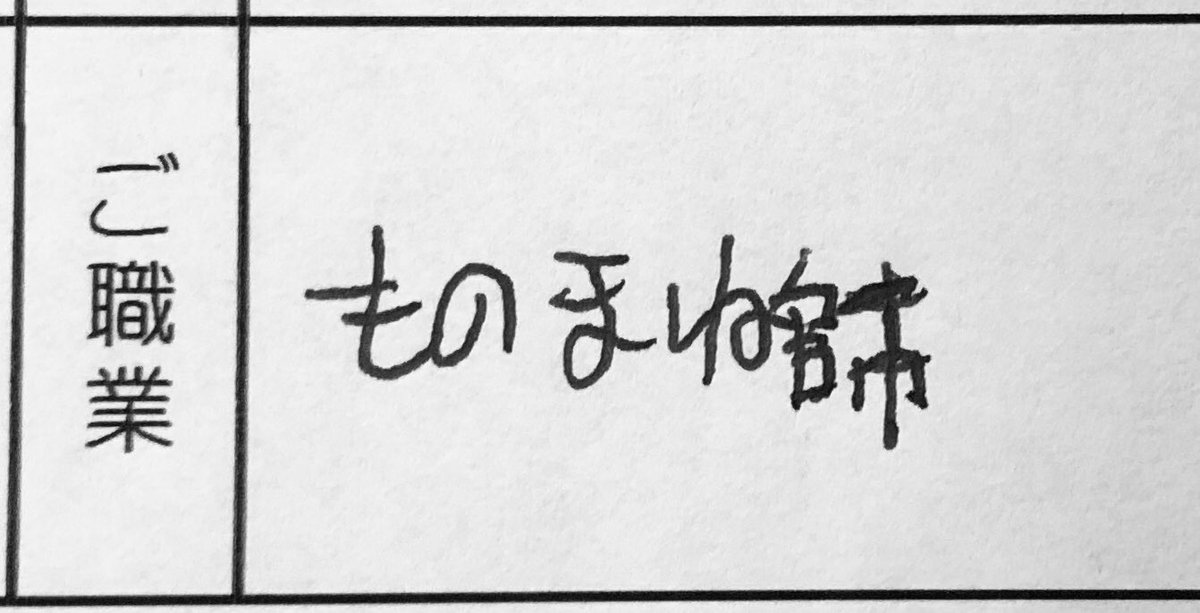 ご職業
ものまね師